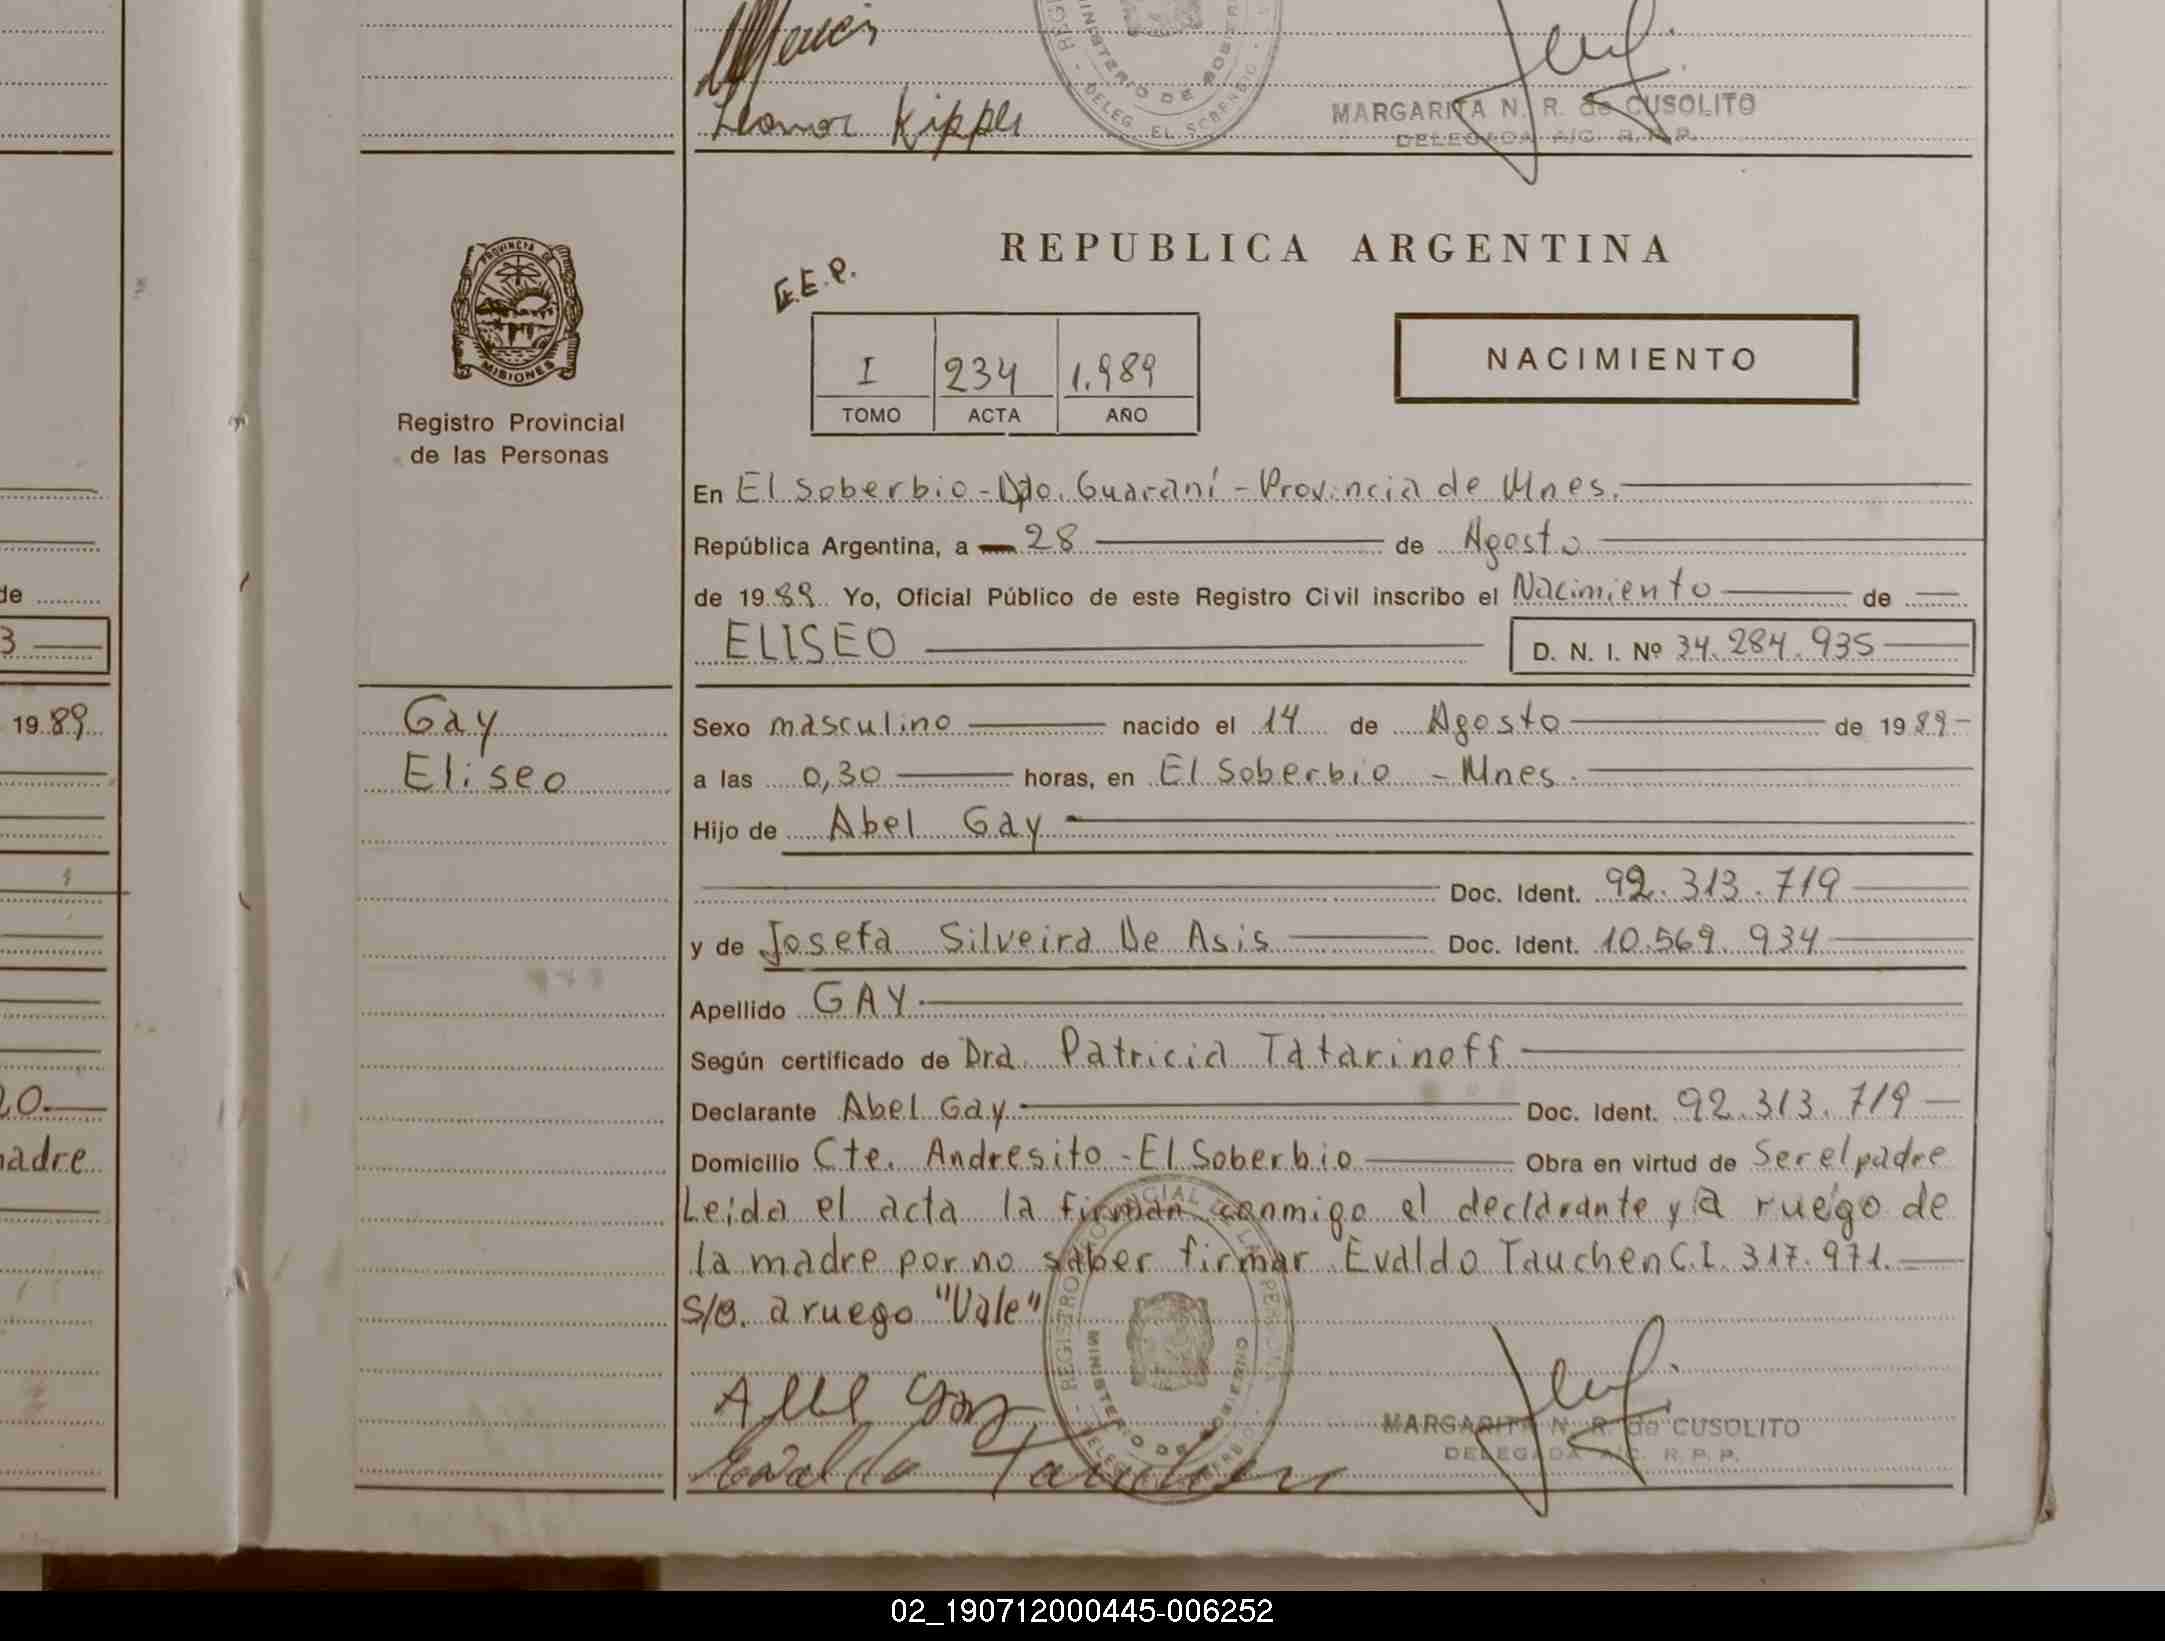 Leonor Kippes
MINISTERIO DE GOBIERNO
DELEG. EL SOBERBIO
MARGARITA N. R. de CUSOLITO
DELEGADA A/C. R. P. P.
PROVINCIA DE
MISIONES
Registro Provincial
de las Personas
REPUBLICA ARGENTINA
E.E.P.
I 234 1.989
TOMO ACTA AÑO
NACIMIENTO
En El Soberbio - Dpto. Guaraní - Provincia de Mnes.
República Argentina, a 28 de Agosto
de 1989 Yo, Oficial Público de este Registro Civil inscribo el Nacimiento de
ELISEO D. N. I. Nº 34.284.935
de
3
1989
20
madre
Gay
Eliseo
Sexo masculino nacido el 14 de Agosto de 1989
a las 0,30 horas, en El Soberbio - Mnes.
Hijo de Abel Gay
Doc. Ident. 92.313.719
y de Josefa Silveira De Asis Doc. Ident. 10.569.934
Apellido GAY
Según certificado de Dra. Patricia Tatarinoff
Declarante Abel Gay Doc. Ident. 92.313.719
Domicilio Cte. Andresito - El Soberbio Obra en virtud de Ser el padre
Leida el acta la firman conmigo el declarante y a ruego de
la madre por no saber firmar Evaldo Tauchen C.I. 317.971.
S/B. a ruego "Vale"
REGISTRO PROVINCIAL DE LAS PERSONAS
MINISTERIO DE GOBIERNO
DELEG. EL SOBERBIO
Abel Gay
Evaldo Tauchen
MARGARITA N. R. de CUSOLITO
DELEGADA A/C. R. P. P.
02_190712000445-006252